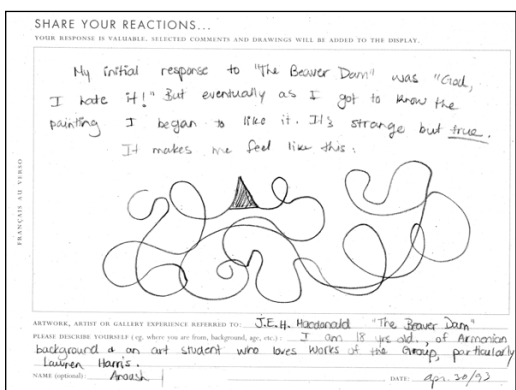 SHARE YOUR REACTIONS...
YOUR RESPONSE IS VALUABLE. SELECTED COMMENTS AND DRAWINGS WILL BE ADDED TO THE DISPLAY.
My initial response to "The Beaver Dam" was "God,
I hate it!" But eventually as I got to know the
painting I began to like it. It's strange but true.
It makes me feel like this:
FRANÇAIS AU VERSO
ARTWORK, ARTIST OR GALLERY EXPERIENCE REFERRED TO: J.E.H. Macdonald "The Beaver Dam"
PLEASE DESCRIBE YOURSELF (eg. where you are from, background, age, etc.): I am 18 yrs old., of Armenian
background & an art student who loves works of the Group, particularly
Lawren Harris.
NAME (optional): Aroush DATE: apr. 30/93